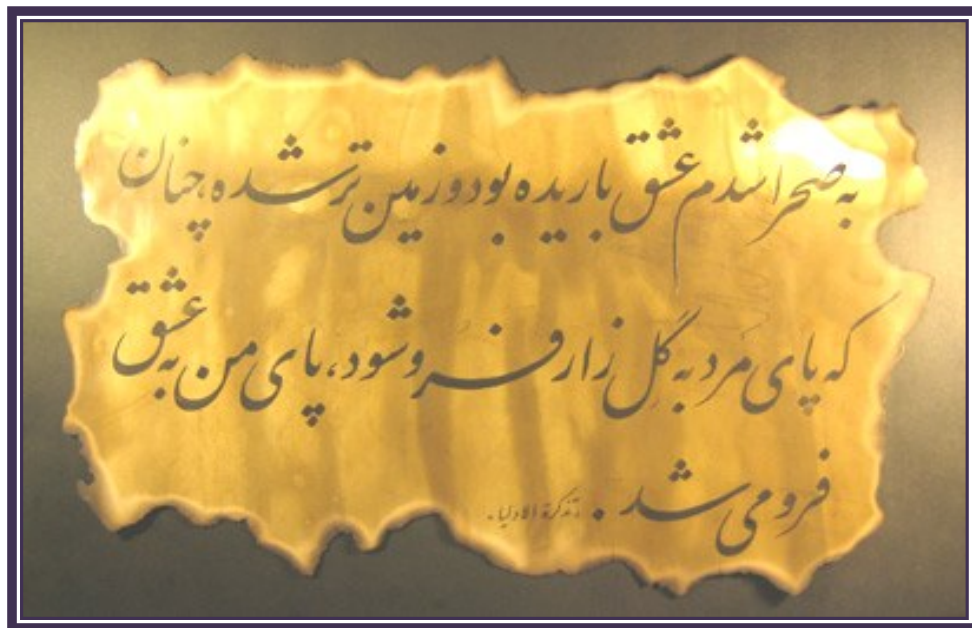 به صحرا شدم عشق باریده بود و زمین تر شده، چنان
که پای مرد به گِل زار فرو شود، پای من به عشق
فرو می شد. تذکرة الاولیا.